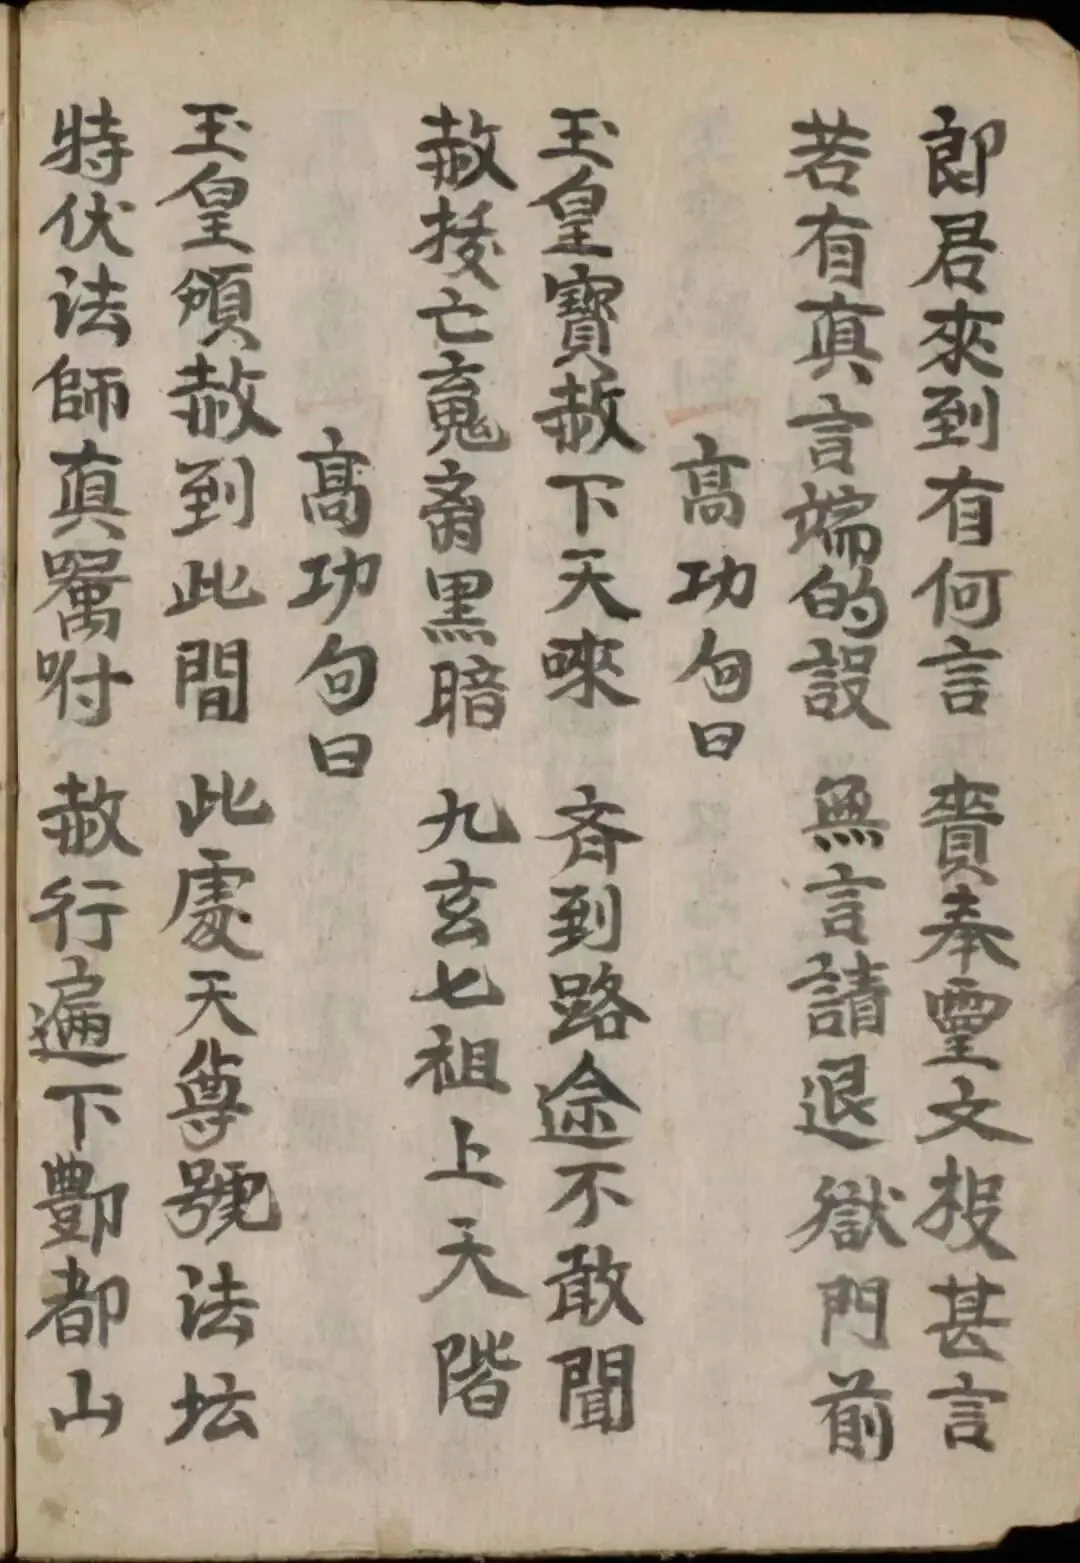 郎君來到有何言 賷奉靈文投甚言
若有真言端的設 無言請退獄門前
高功旬曰
玉皇寶赦下天唻 斉到路途不敢聞
赦接亡䰟离黑暗 九玄七祖上天階
高功旬曰
玉皇頒赦到此間 此處天尊號法坛
特伏法師真囑咐 赦行遍下酆都山